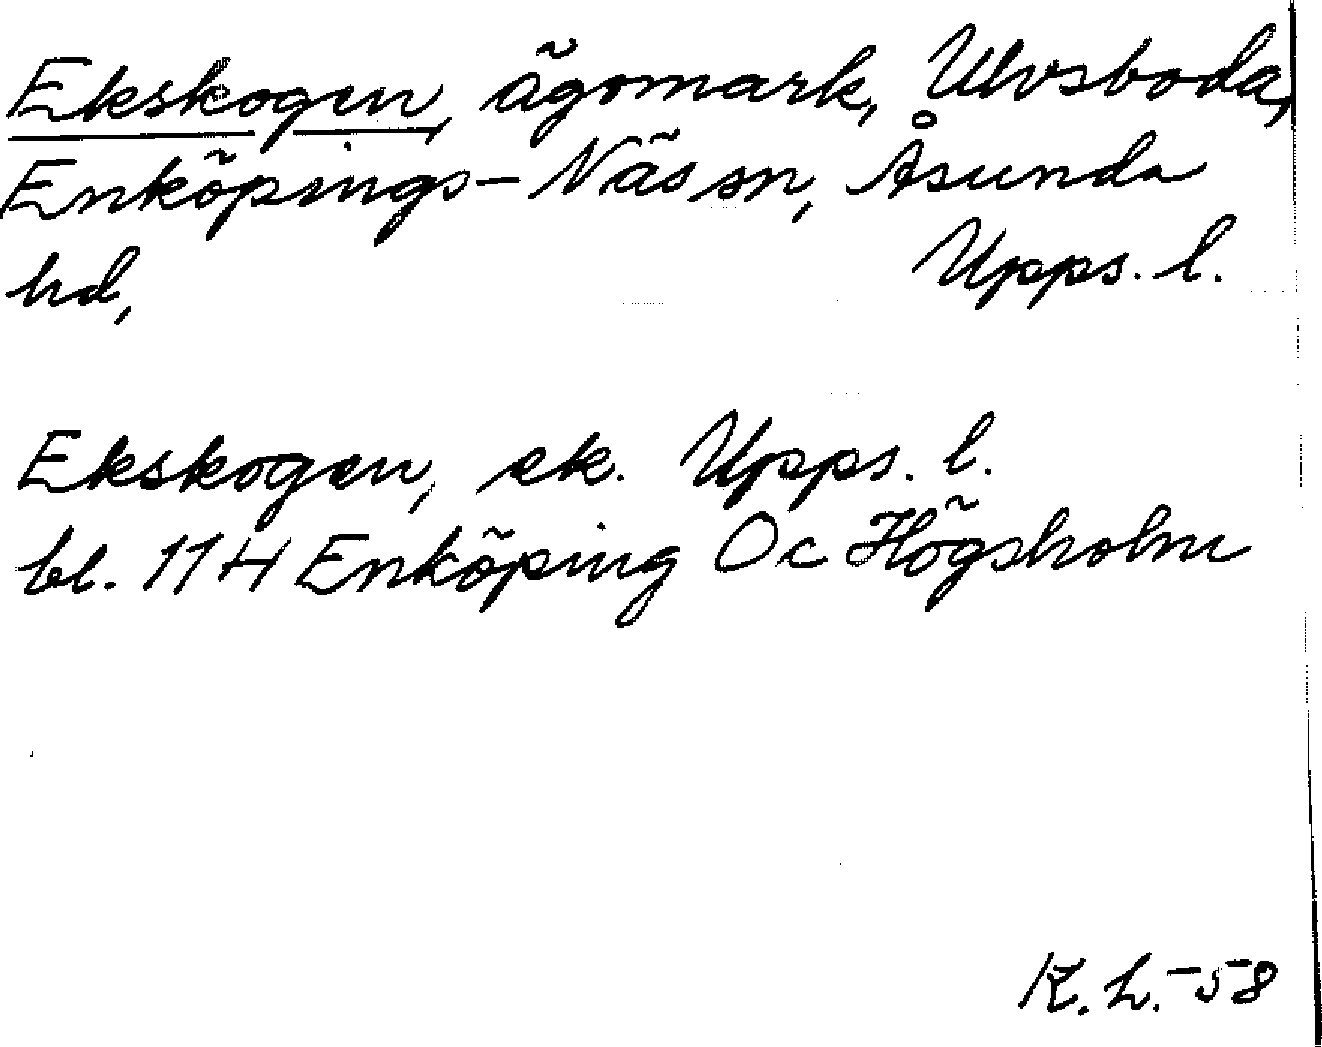 Ekskogen, ägomark, Ulvsboda,
Enköpings-Näs sn, Åsunda
hd, Upps. l.
Ekskogen, ek. Upps. l.
bl. 114 Enköping Oc Högsholm
K. L. -58